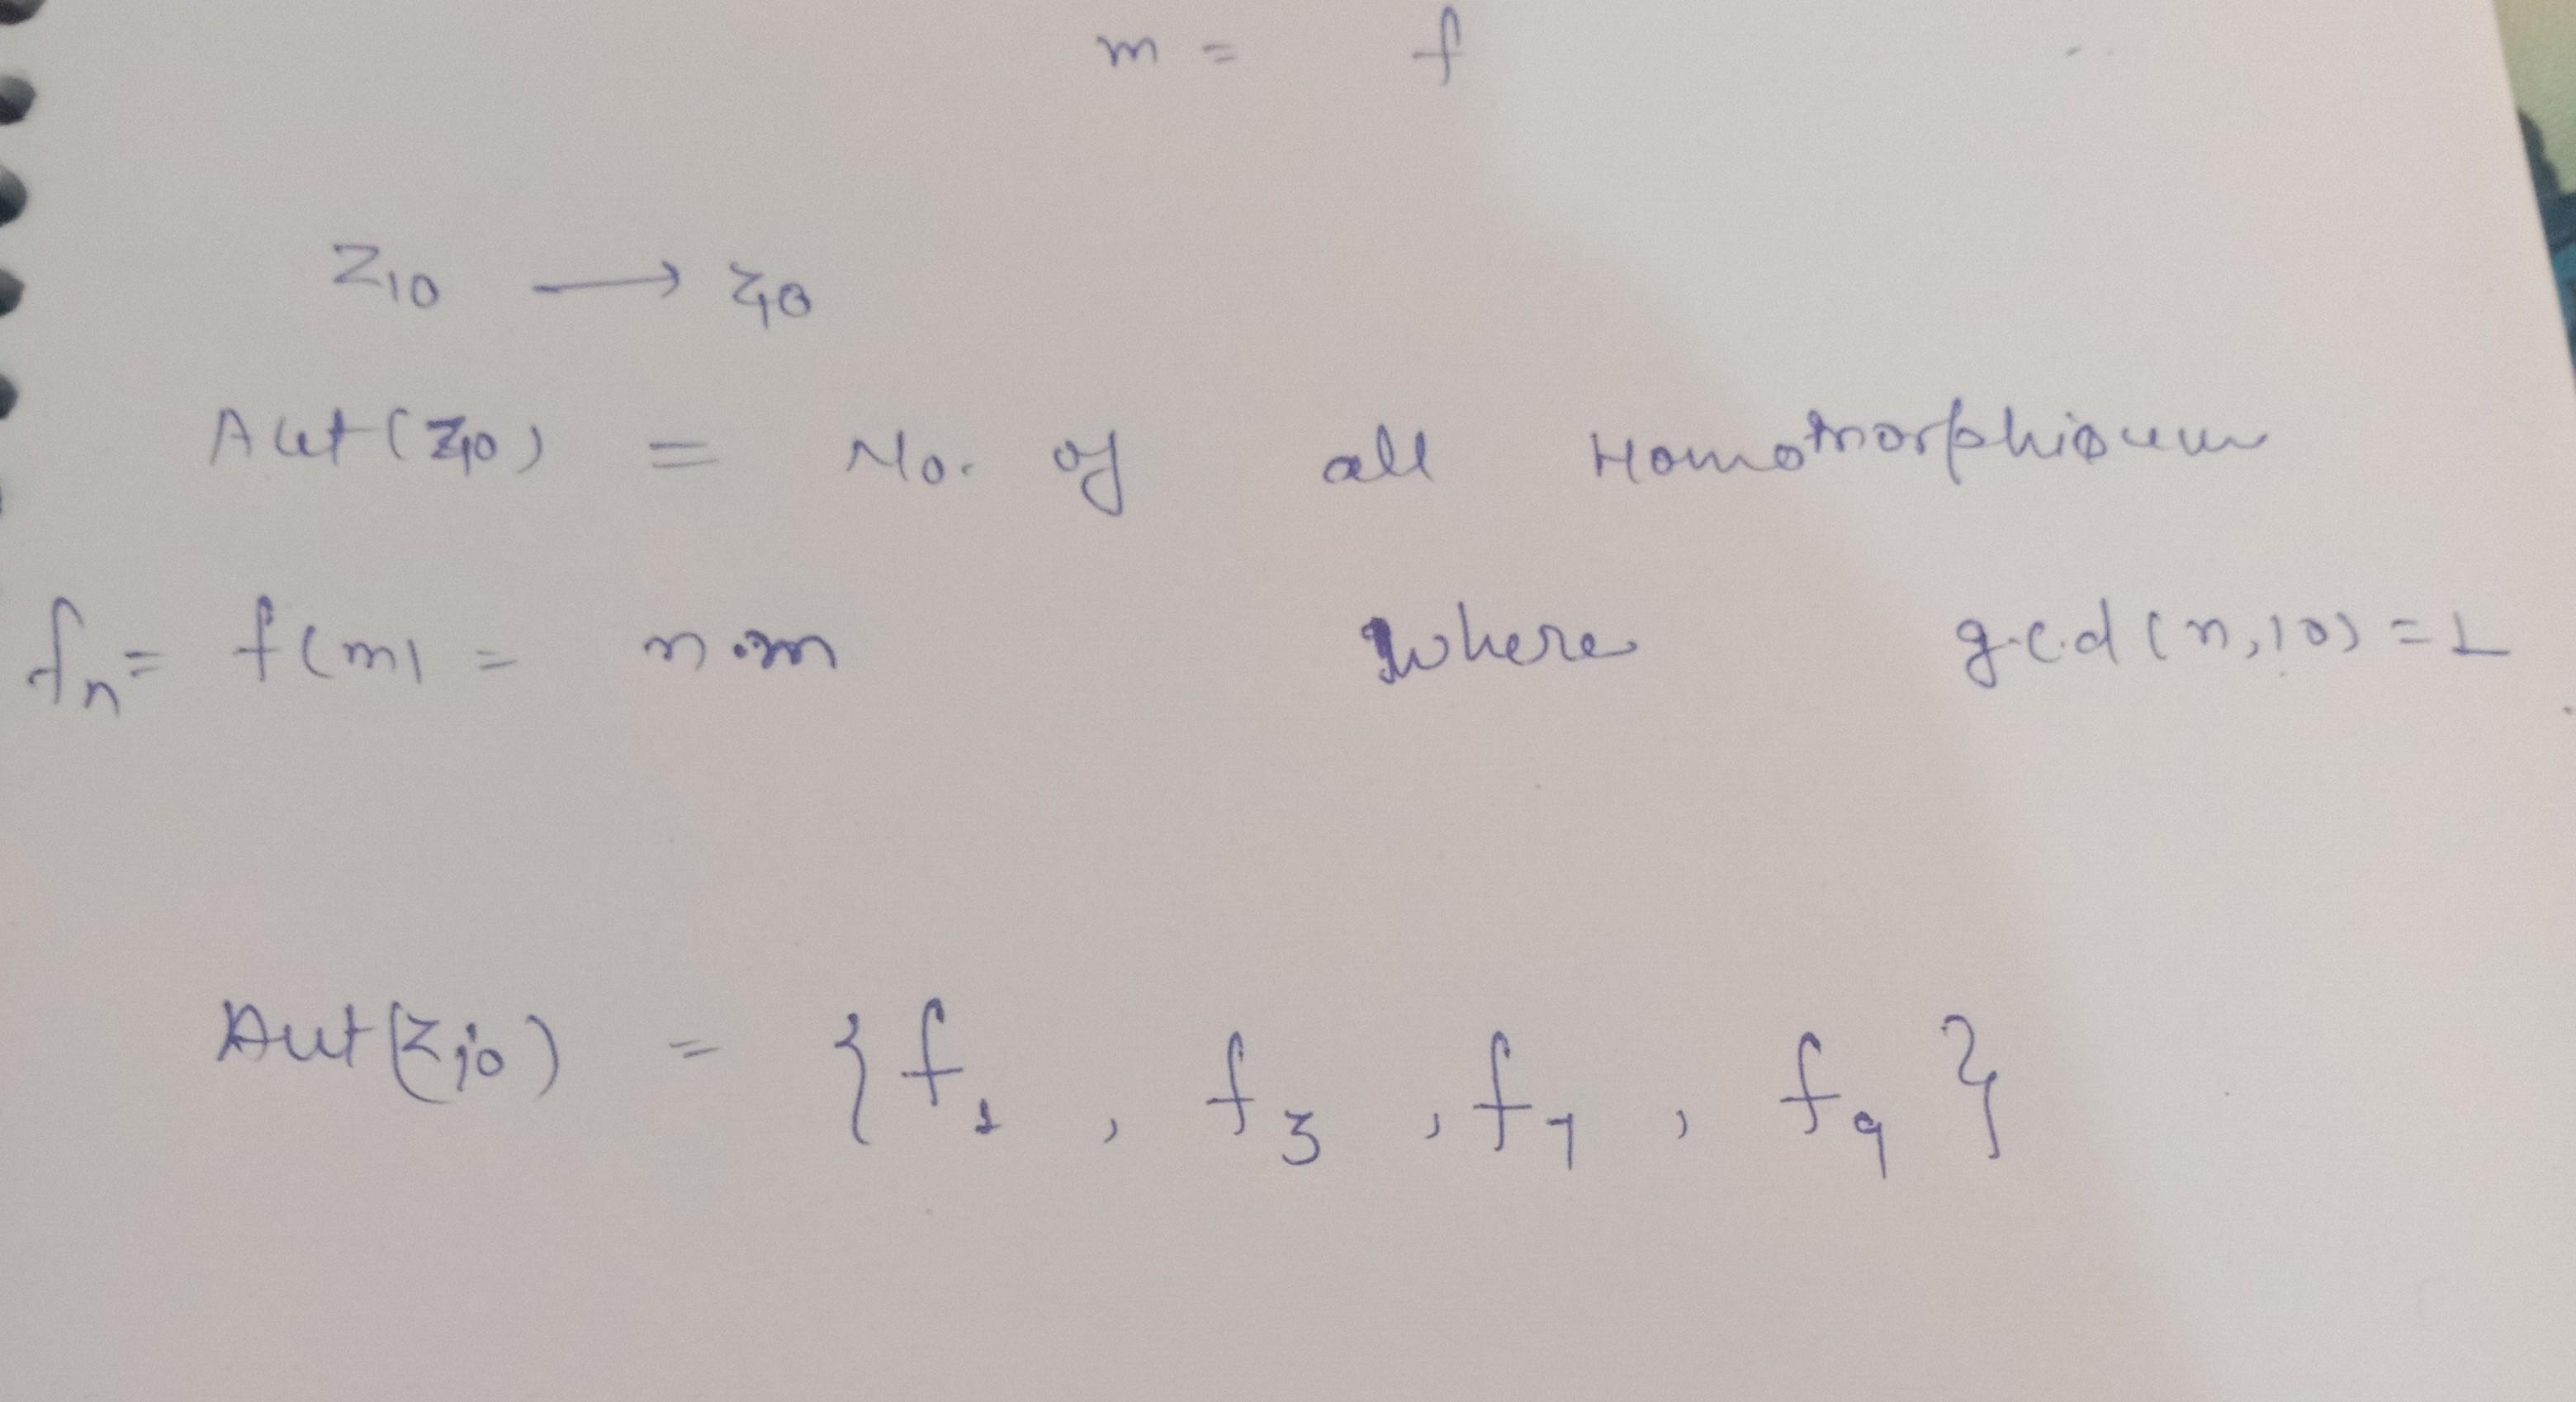 m = f
Z10 → Z10
Aut(Z10) = No. of all Homomorphisum
fn = f(m) = n.m where g.c.d(n,10) = 1
Aut(Z10) = {f1, f3, f7, f9}